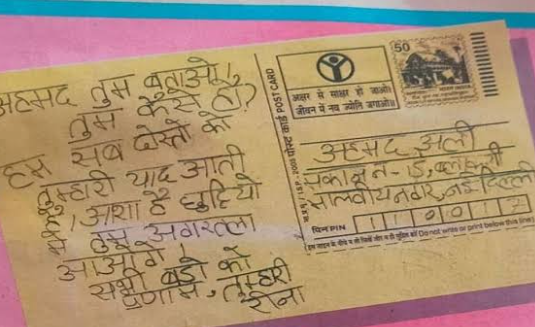 अहमद तुम बताओ!
तुम कैसे हो?
हम सब दोस्तों को
तुम्हारी याद आती
है। आशा है छुट्टियों
में तुम अगरतला
आओगे।
सभी बड़ों को
प्रणाम, तुम्हारी
रीना
पोस्ट कार्ड POST CARD
अक्षर से साक्षर हो जाओ।
जीवन में नव ज्योति जगाओ॥
50
अहमद अली
मकान न-
मालवीयनगर, नई दिल्ली
पिन PIN 1 1 0 0 1 7
इस लाइन के नीचे न तो लिखें और न ही मुद्रित करें Do not write or print below this line